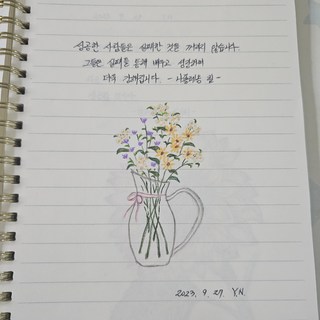 성공한 사람들은 실패한 것을 꺼려하지 않습니다.
그들은 실패를 통해 배우고 성장하며
더욱 강해집니다. - 나폴레옹 힐 -
2023. 9. 27 Y.N.